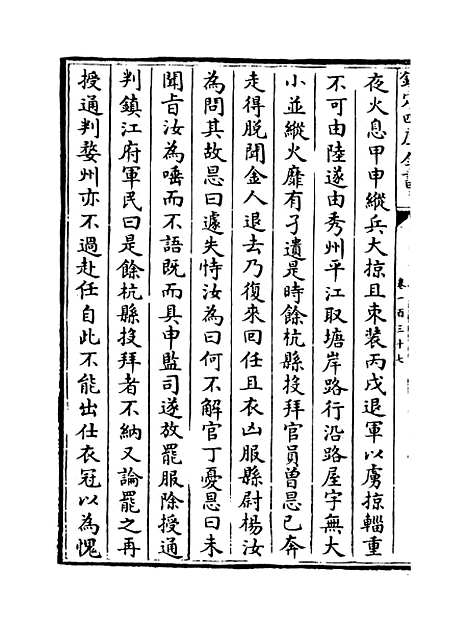 欽定四庫全書
卷一百三十七
夜火息甲申縱兵大掠且束裝丙戌退軍以虜掠輜重
不可由陸遂由秀州平江取塘岸路行沿路屋宇無大
小並縱火靡有孑遺是時餘杭縣投拜官員曽㤙已奔
走得脱聞金人退去乃復來回任且衣凶服縣尉楊汝
為問其故㤙曰遽失恃汝為曰何不解官丁憂㤙曰未
聞㫖汝為唾而不語既而具申監司遂放罷服除授通
判鎮江府軍民曰是餘杭縣投拜者不納又論罷之再
授通判婺州亦不過赴任自此不能出仕衣冠以為愧